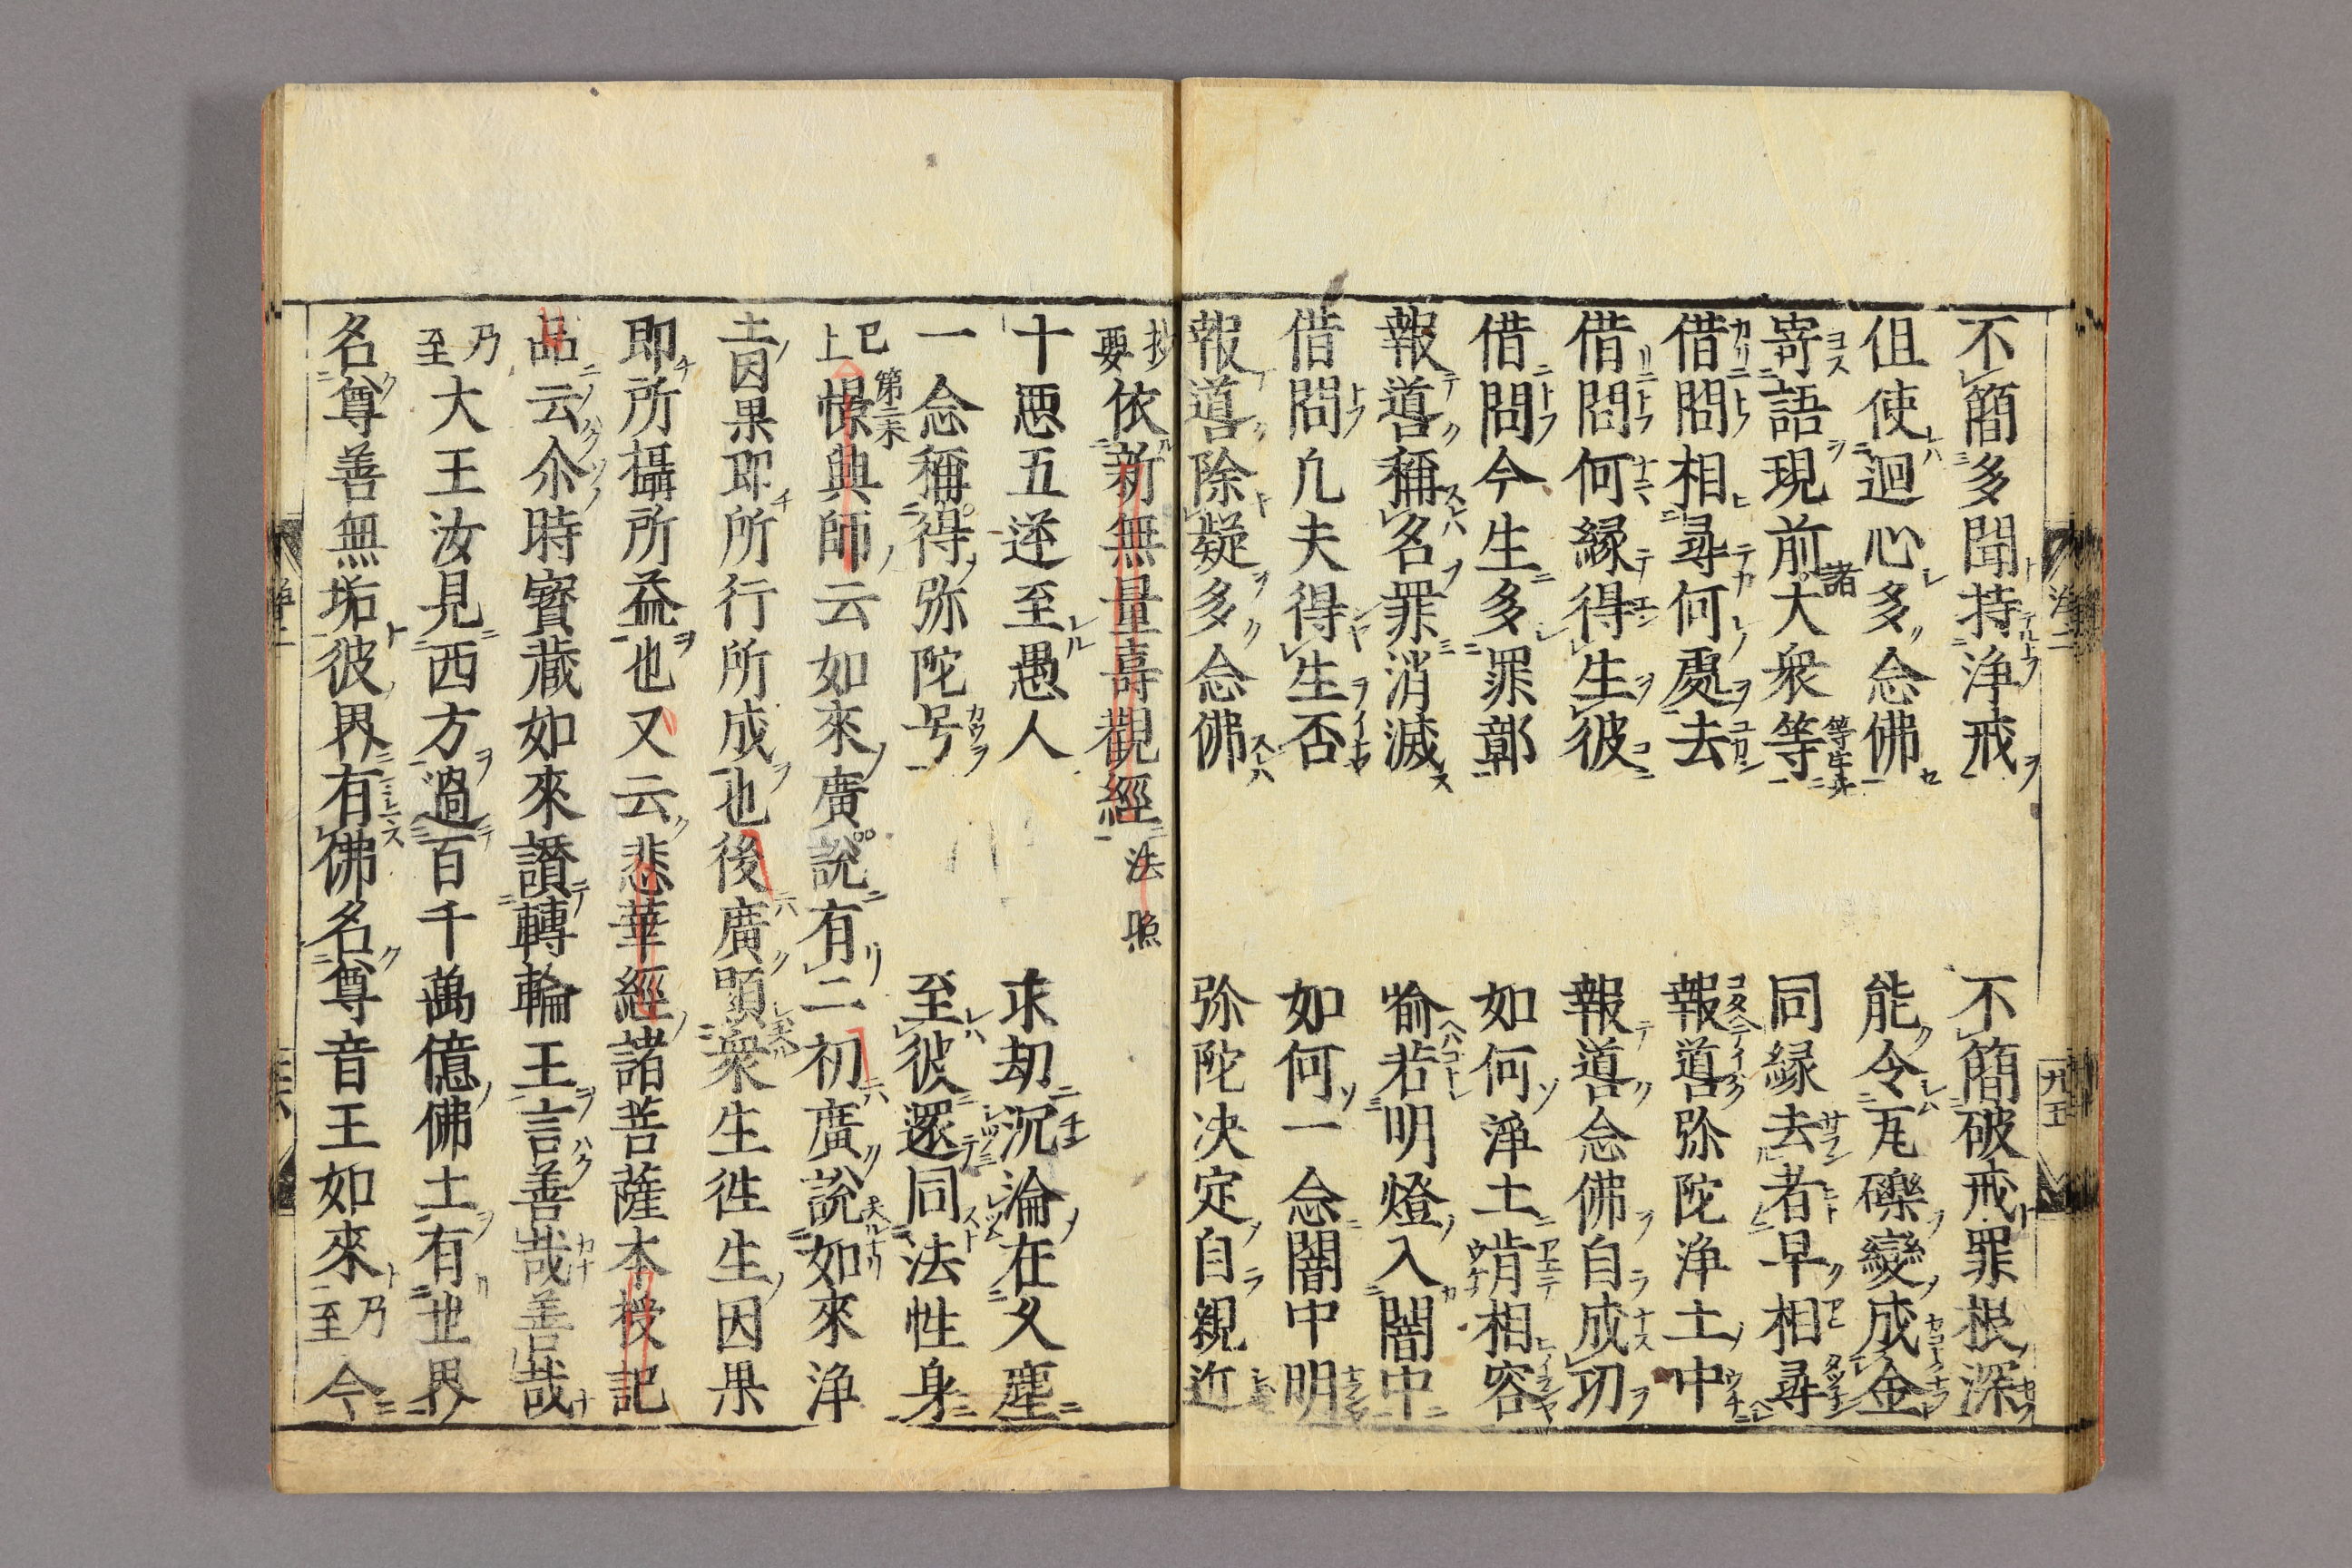 不簡多聞持浄戒 不簡破戒罪根深
但使迴心多念佛 能令瓦礫變成金
寄語現前大衆等 同縁去者早相尋
借問相尋何處去 報噵弥陀浄土中
借問何縁得生彼 報噵念佛自成㓛
借問今生多罪鄣 如何浄土肯相容
報噵稱名罪消滅 喻若明燈入闇中
借問凢夫得生否 如何一念闇中明
報噵除疑多念佛 弥陀决定自親近
抄要依新無量壽觀經法照
十悪五逆至愚人 永劫沉淪在久塵
一念稱得弥陀号 至彼還同法性身
已上憬興師云如來廣説有二初廣説如來浄
土因果即所行所成也後廣顕衆生徃生因果
即所攝所益也又云悲華經諸菩薩本授記
品云尒時寳蔵如來讃轉輪王言善哉善哉
乃至大王汝見西方過百千萬億佛土有世界
名尊善無垢彼界有佛名尊音王如來乃至今